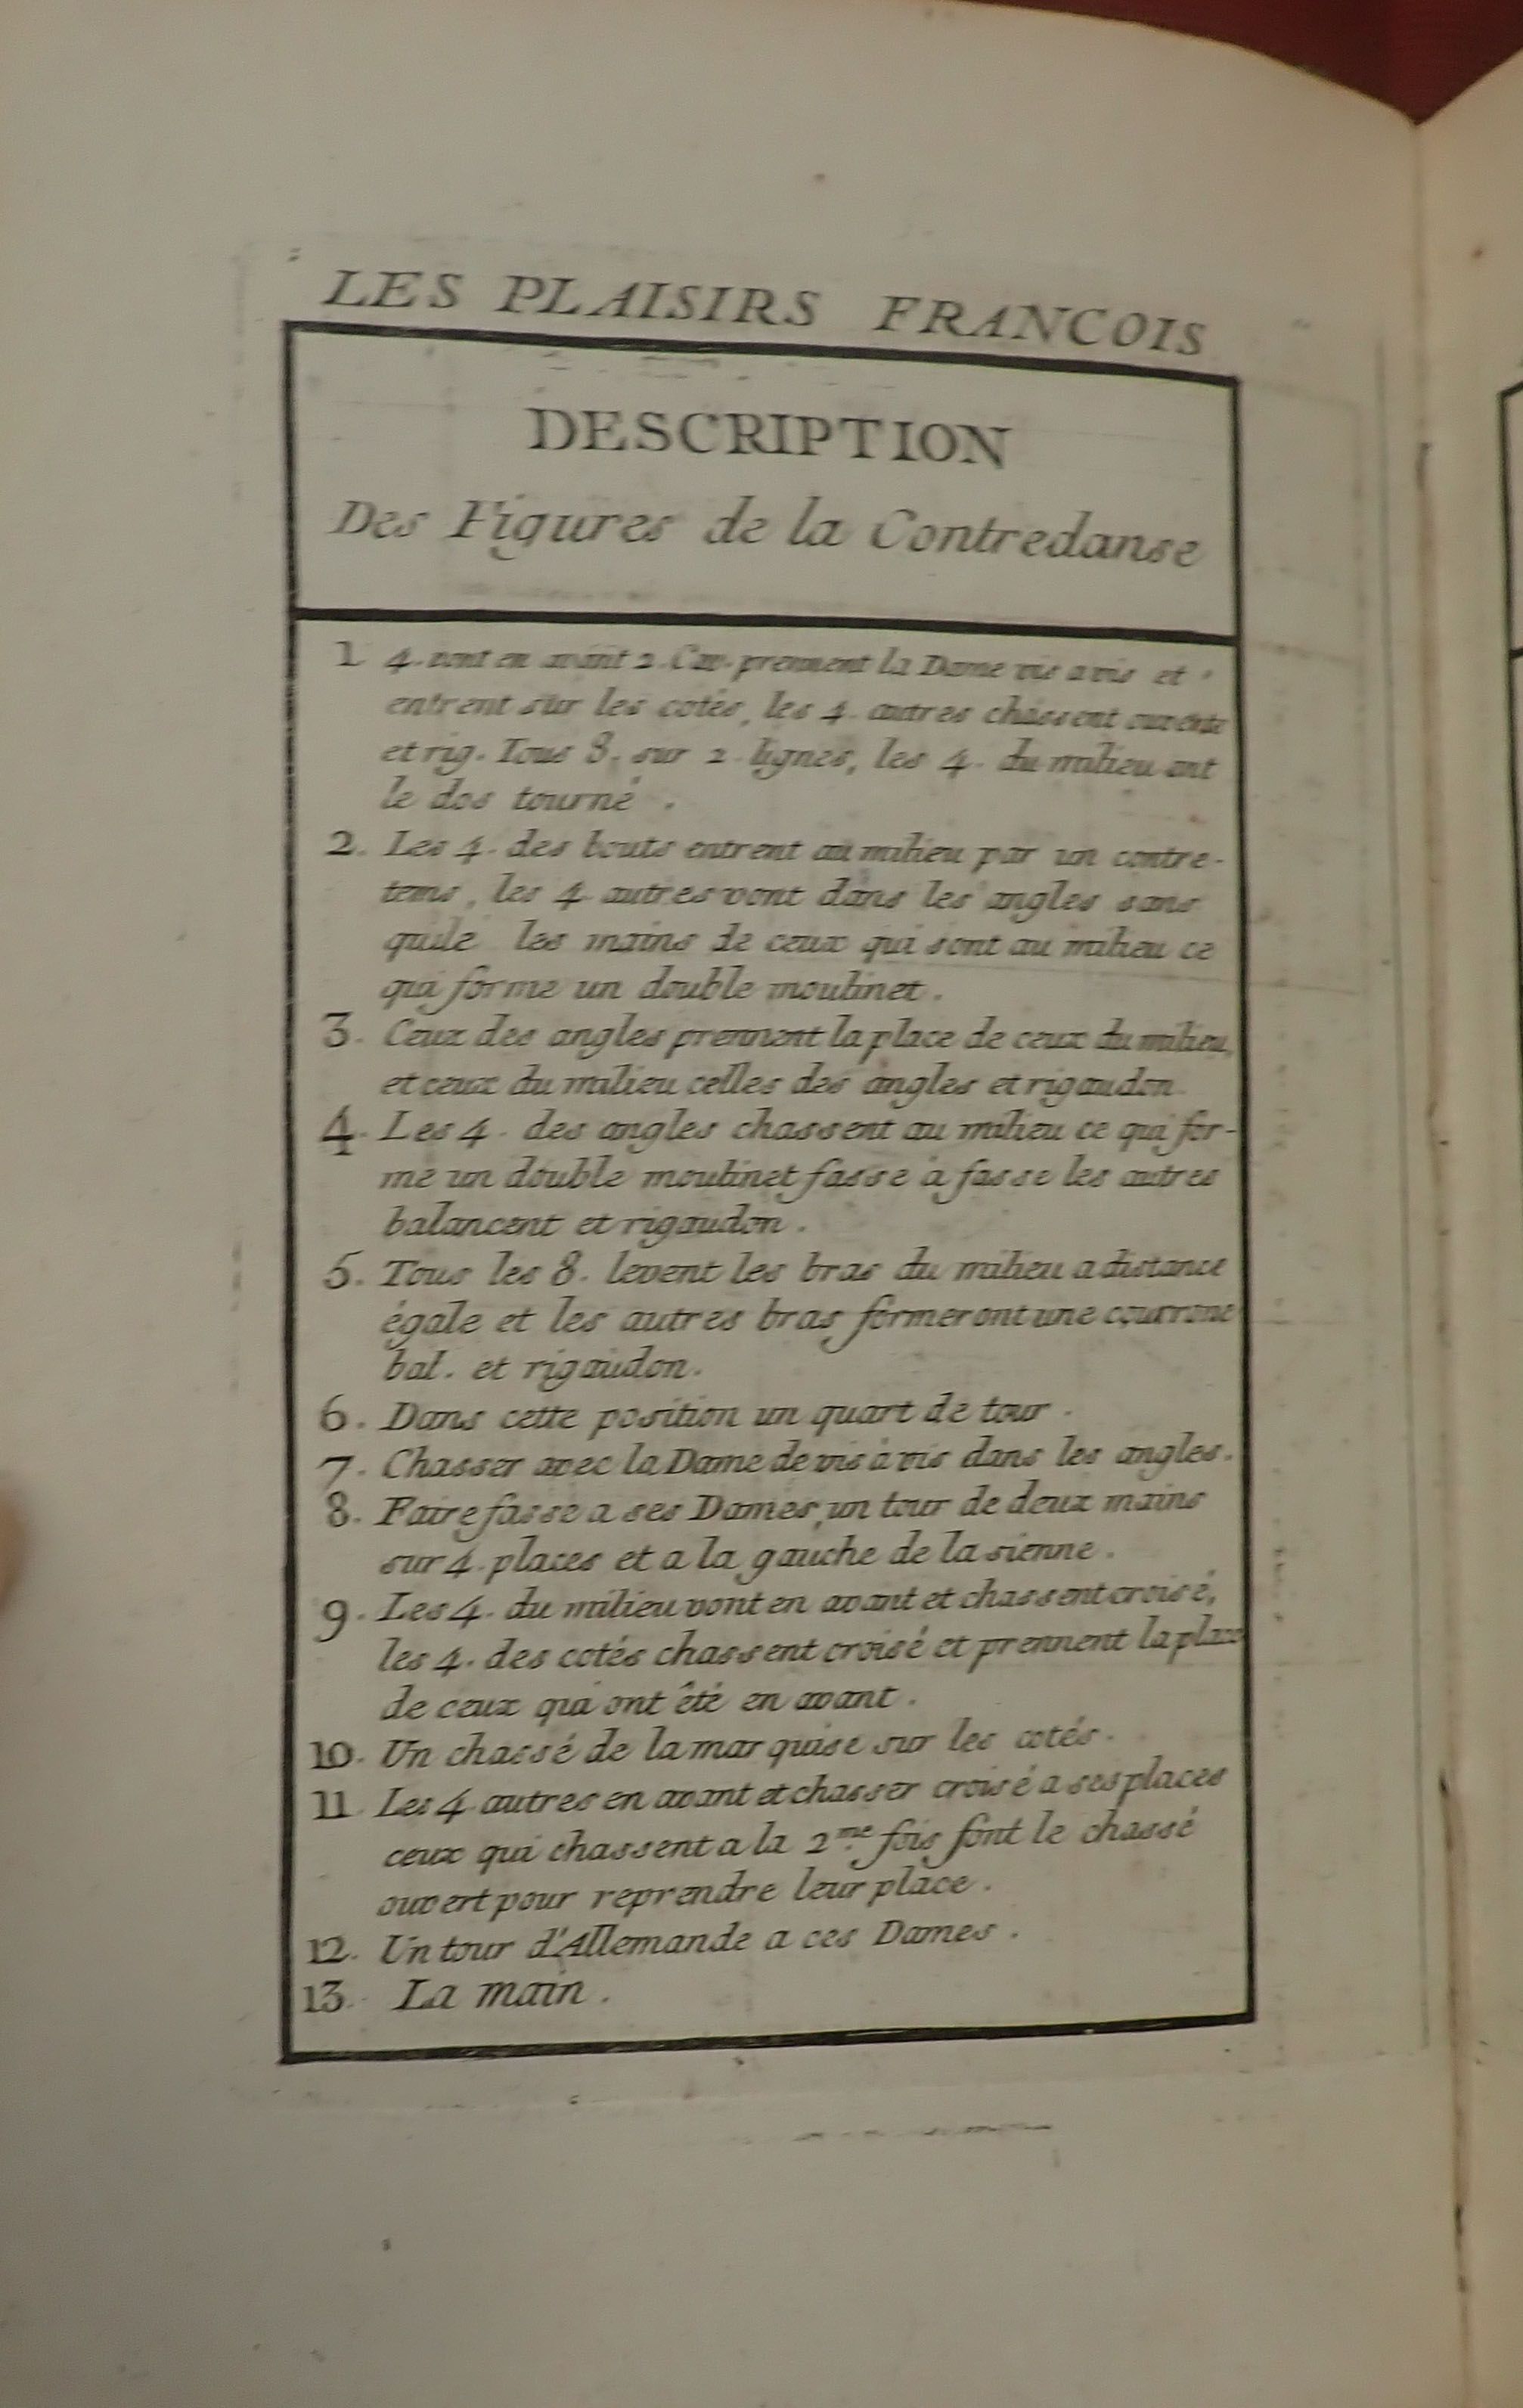 LES PLAISIRS FRANCOIS
DESCRIPTION
Des Figures de la Contredanse
1 4. vont en avant 2. Cav. prennent la Dame vis a vis et
entrent sur les cotés, les 4. autres chassent ouverte
et rig. Tous 8. sur 2. lignes, les 4. du milieu ont
le dos tourné.
2. Les 4. des bouts entrent au milieu par un contre-
tems, les 4 autres vont dans les angles sans
quite les mains de ceux qui sont au milieu ce
qui forme un double moulinet.
3. Ceux des angles prennent la place de ceux du milieu,
et ceux du milieu celles des angles et rigaudon
4. Les 4. des angles chassent au milieu ce qui for-
me un double moulinet fasse à fasse les autres
balancent et rigaudon.
5. Tous les 8. levent les bras du milieu a distance
égale et les autres bras formeront une courrone
bal. et rigaudon.
6. Dans cette position un quart de tour.
7. Chasser avec la Dame de vis à vis dans les angles.
8. Faire fasse a ses Dames, un tour de deux mains
sur 4. places et a la gauche de la sienne.
9. Les 4. du milieu vont en avant et chassent croisé,
les 4. des cotés chassent croisé et prennent la place
de ceux qui ont êté en avant.
10. Un chassé de la marquise sur les cotés.
11. Les 4 autres en avant et chasser croisé a ses places
ceux qui chassent a la 2me fois font le chassé
ouvert pour reprendre leur place.
12. Un tour d'Allemande a ces Dames.
13. La main.